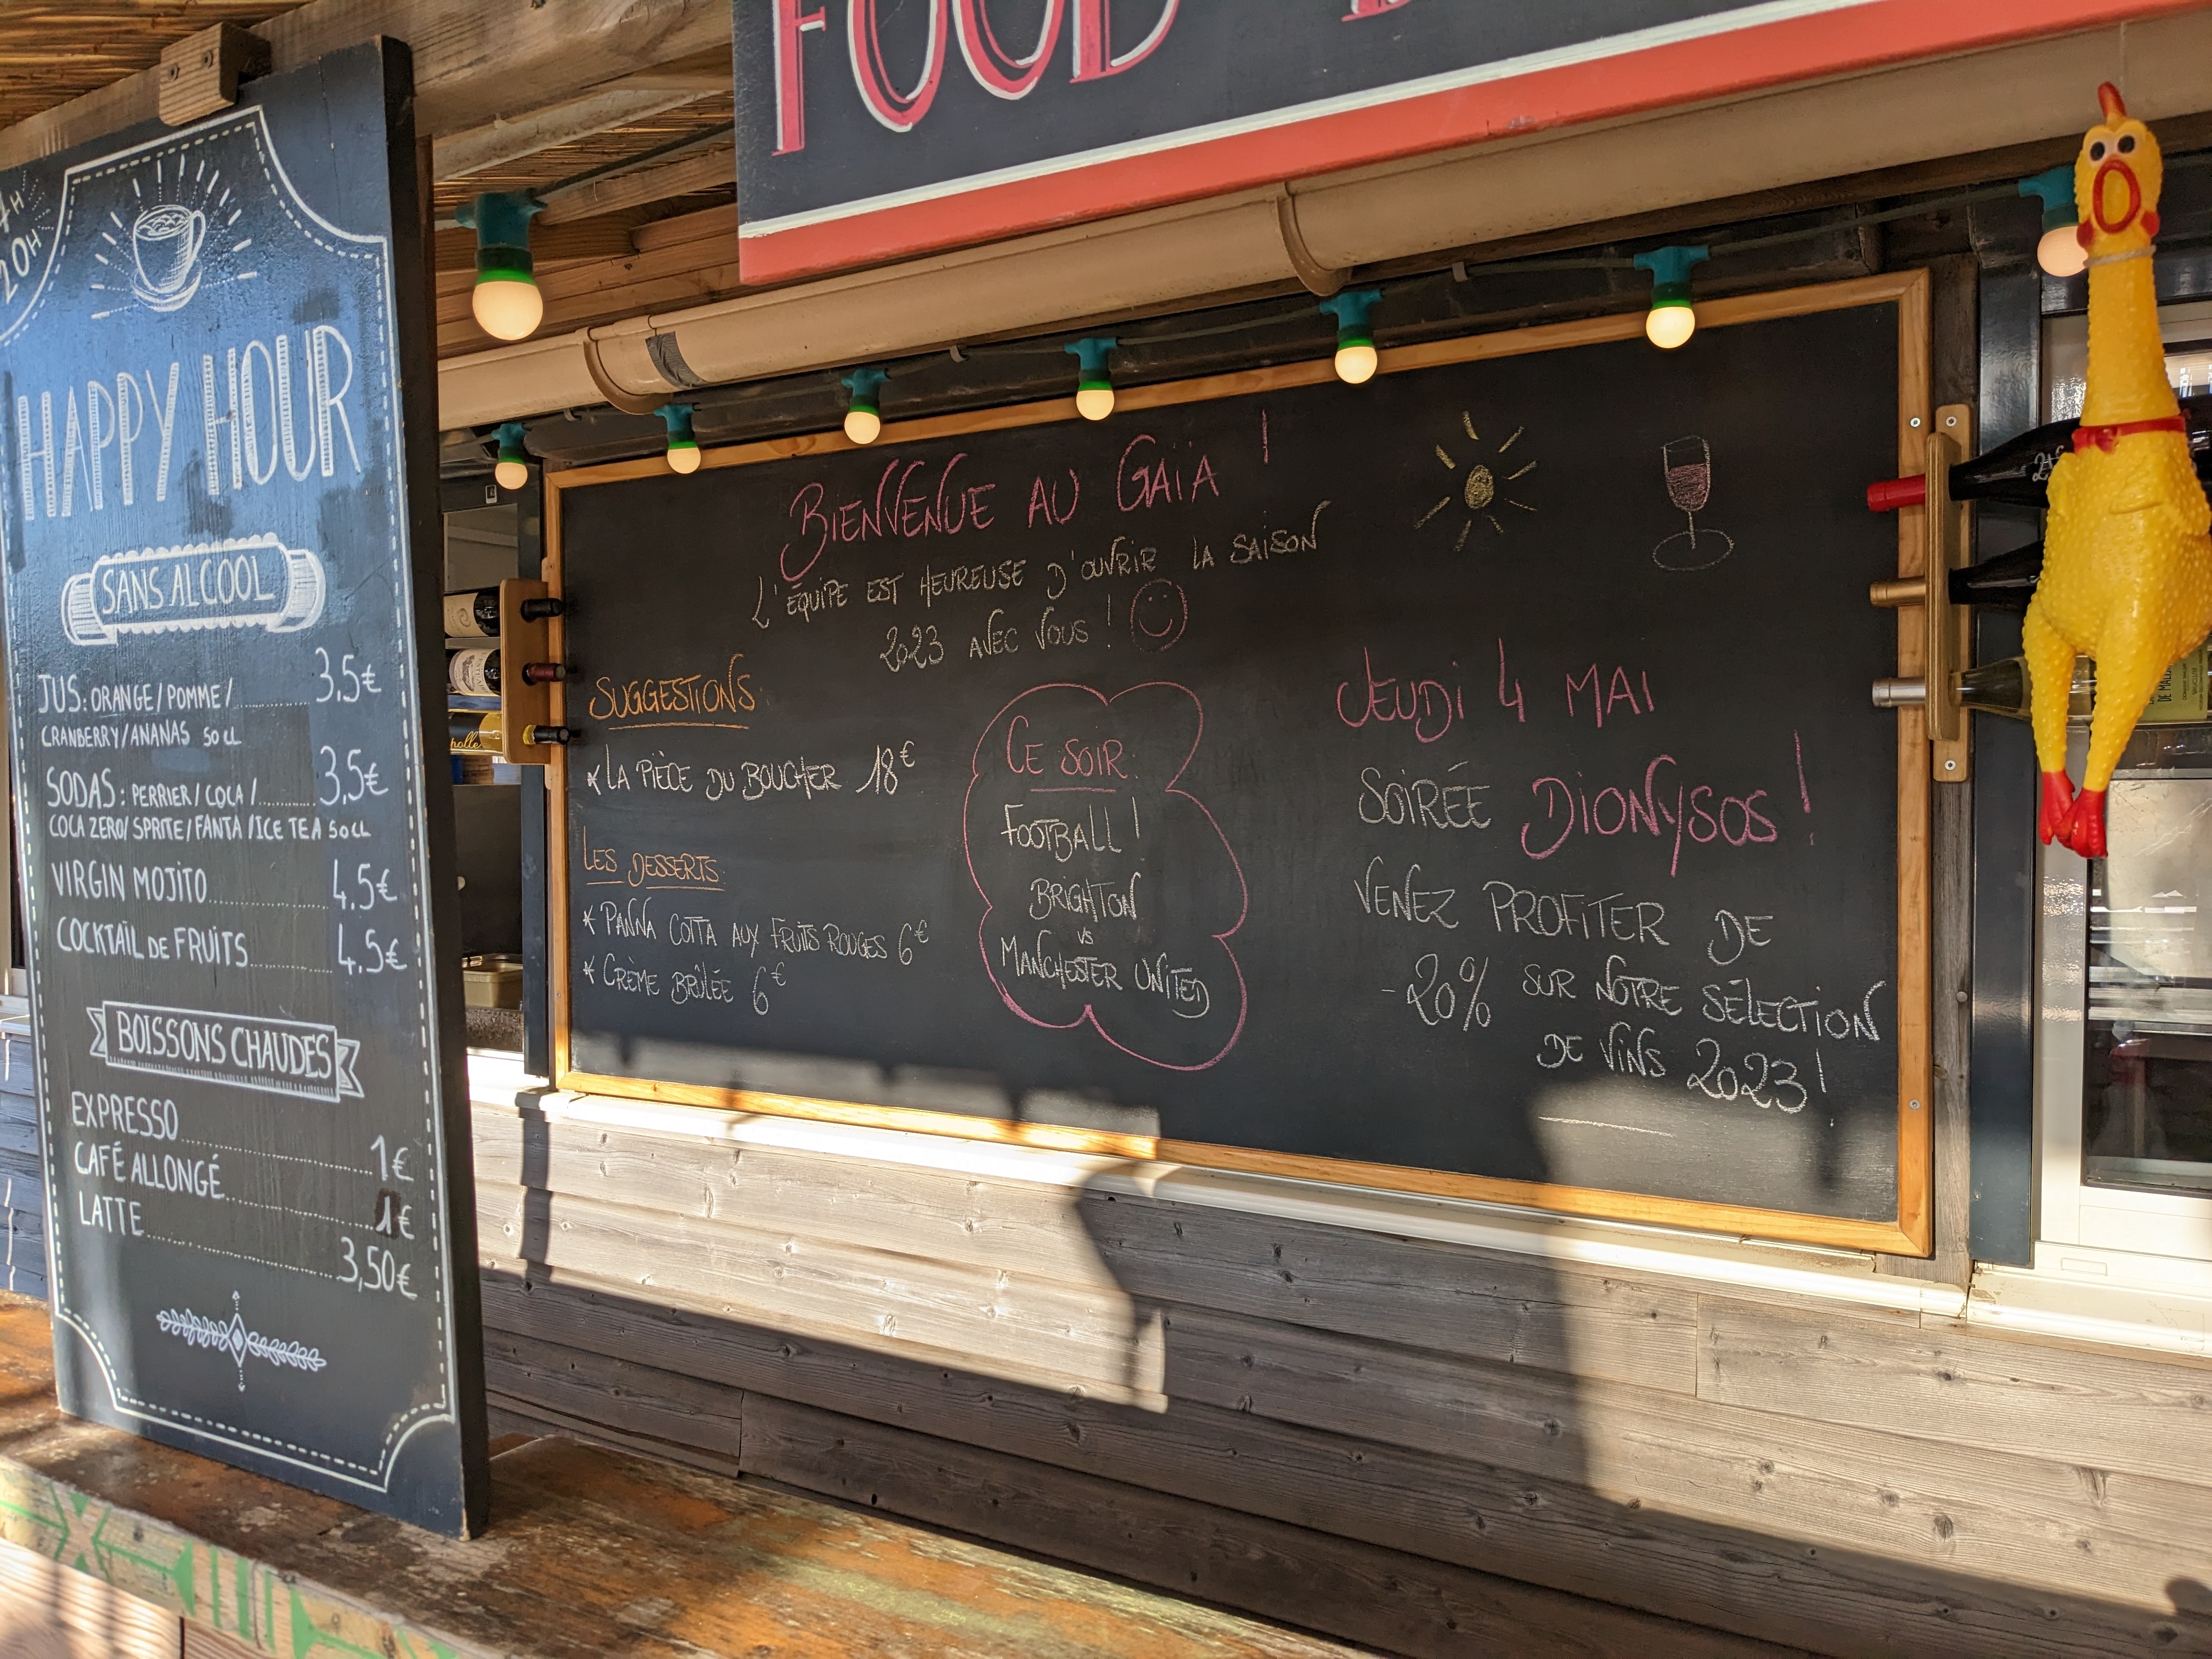 FOOD
20H
HAPPY HOUR
SANS ALCOOL
JUS: ORANGE/POMME/.......... 3.5€
CRANBERRY/ANANAS 50 CL
SODAS: PERRIER/COCA/.......... 3,5€
COCA ZERO/SPRITE/FANTA/ICE TEA 50CL
VIRGIN MOJITO.......... 4.5€
COCKTAIL DE FRUITS.......... 4.5€
BOISSONS CHAUDES
EXPRESSO.......... 1€
CAFÉ ALLONGÉ.......... 1€
LATTE.......... 3,50€
BIENVENUE AU GAÏA !
L'ÉQUIPE EST HEUREUSE D'OUVRIR LA SAISON
2023 AVEC VOUS !
SUGGESTIONS:
* LA PIÈCE DU BOUCHER 18€
LES DESSERTS:
* PANNA COTTA AUX FRUITS ROUGES 6€
* CRÈME BRÛLÉE 6€
CE SOIR:
FOOTBALL !
BRIGHTON
VS
MANCHESTER UNITED
JEUDI 4 MAI
SOIRÉE DIONYSOS !
VENEZ PROFITER DE
-20% SUR NOTRE SÉLECTION
DE VINS 2023 !